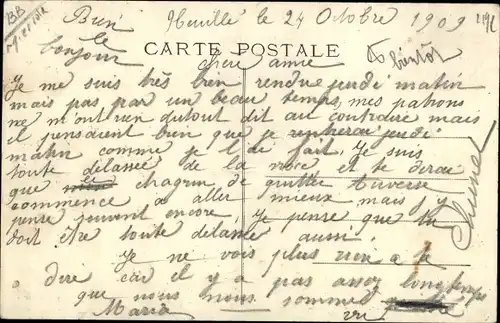 Bien le bonjour
Neuillé le 24 Octobre 1909
CARTE POSTALE
chère amie
A bientôt
Je me suis très bien rendue jeudi matin
mais pas par un beau temps, mes patrons
ne m'ont rien dutout dit au contraire mais
il pensaient bien que je rentrerai jeudi
matin comme je l'ai fait. Je suis
toute délassée de la noce et te dirai
que le chagrin de quitter
commence a aller mieux mais j'y
pense souvent encore. Je pense que tu
doit être toute délassée aussi
Je ne vois plus rien a te
dire car il y a pas assez longtemps
que nous nous sommes vu
Maria